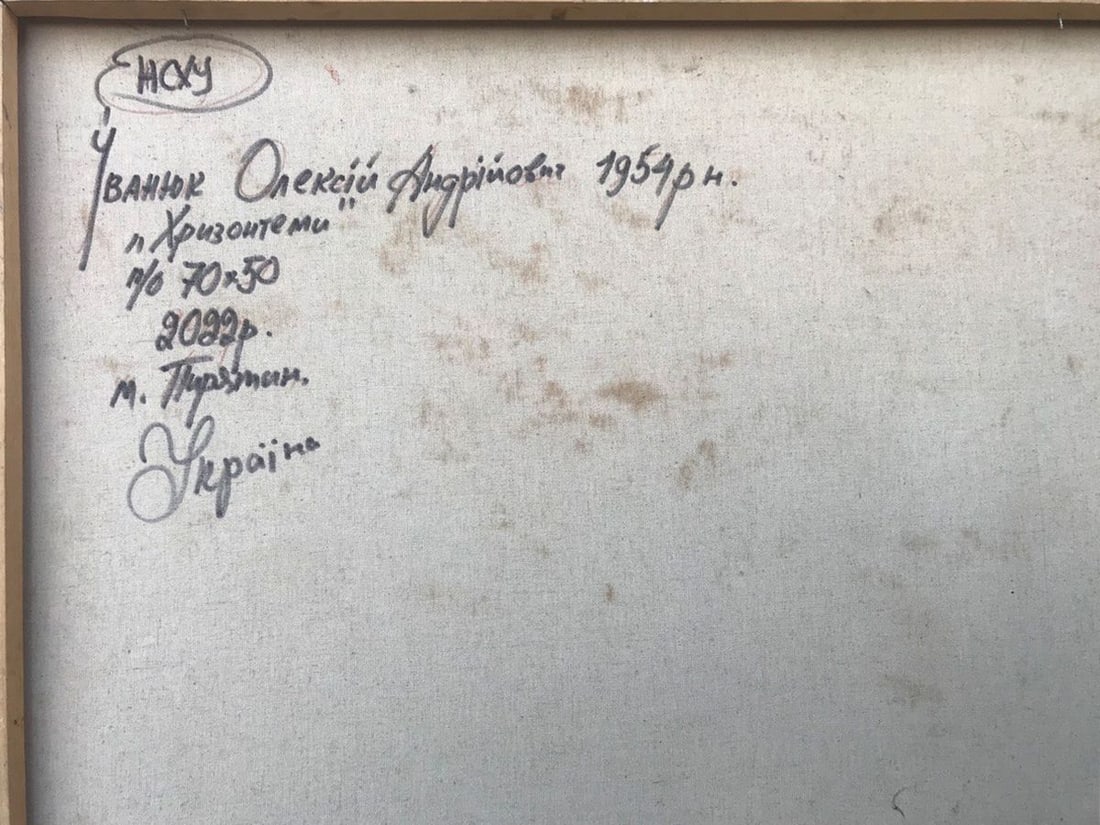 НСХУ
Іванюк Олексій Андрійович 1954р н.
„Хризонтеми"
п/о 70x50
2022р.
м. Пирятин.
Україна